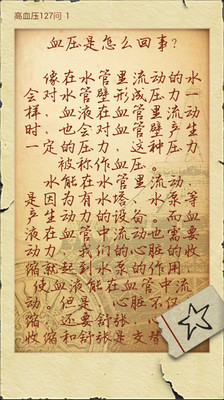 高血压127问 1
血压是怎么回事?
像在水管里流动的水一
会对水管壁形成压力一
样,血液在血管里流动
时,也会对血管壁产生
一定的压力,这种压力
被称作血压。
水能在水管里流动,
是因为有水塔、水泵等
产生动力的设备。而血
液在血管中流动也需要
动力,我们的心脏的收
缩就起到水泵的作用,
使血液能在血管中流
动。但是,心脏不仅
收缩,还要舒张,
收缩和舒张是交替